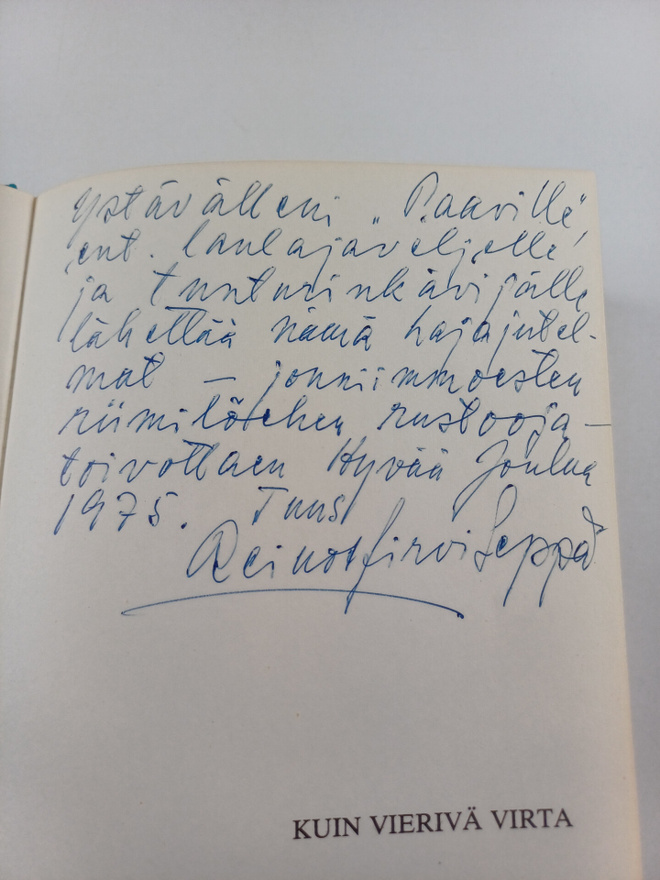 Ystävälleni "Paaville",
ent. laulajaveljelle
ja tunturinkävijälle
lähettää nämä hajajutel-
mat – jonniimmoesten
riimilöehen rustooja –
toivottaen Hyvää Joulua
1975. Tuus
Reino Hirviseppä
KUIN VIERIVÄ VIRTA